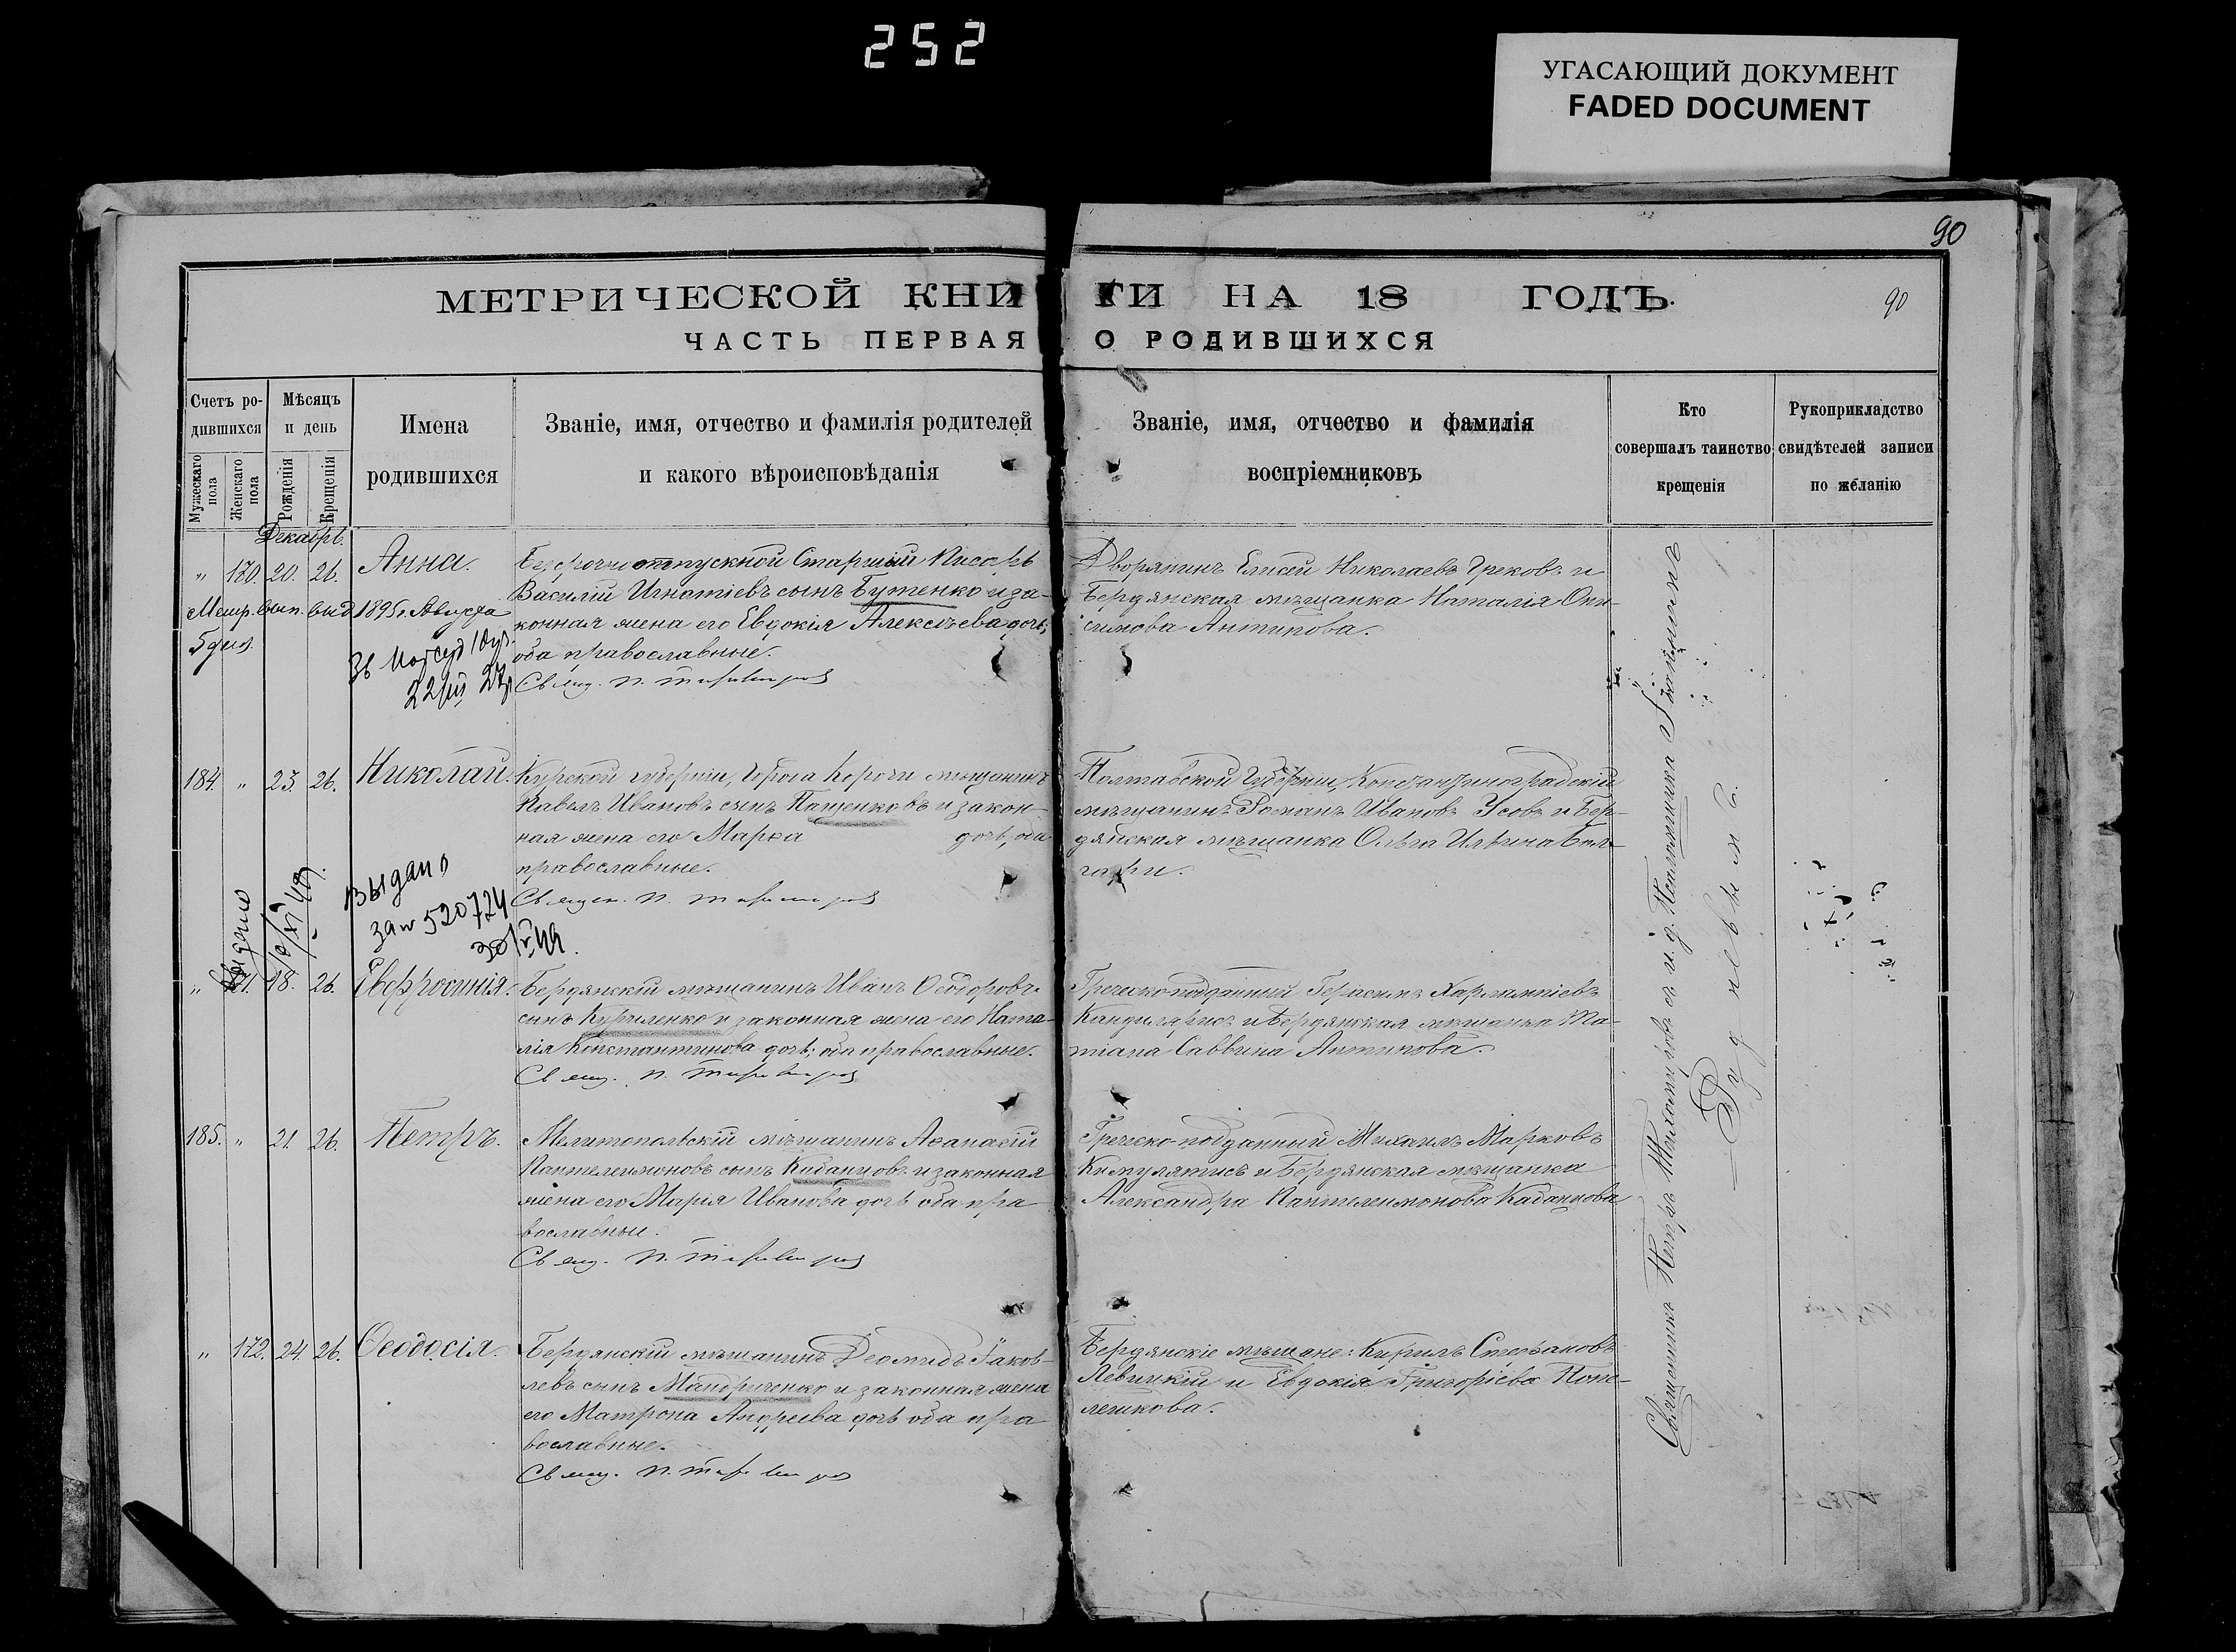 252
УГАСАЮЩИЙ ДОКУМЕНТ
FADED DOCUMENT
90
МЕТРИЧЕСКОЙ КНИГИ НА 18 ГОДЪ.
90
ЧАСТЬ ПЕРВАЯ О РОДИВШИХСЯ
Счетъ родившихся
Мужескаго пола
Женскаго пола
Мѣсяцъ и день
Рожденія
Крещенія
Имена
родившихся
Званіе, имя, отчество и фамилія родителей
и какого вѣроисповѣданія
Званіе, имя, отчество и фамилія
воспріемниковъ
Кто
совершалъ таинство
крещенія
Рукоприкладство
свидѣтелей записи
по желанію
Декабрь.
" 170. 20. 26. Анна.
Безсрочноотпускной Старшій Писарь
Василій Игнатіевъ сынъ Бутенко и за-
конная жена его Евдокія Алексѣева дочь,
оба православные.
Метр. вып. выд. 1895 г. Августа
5 дня.
Дворянинъ Елисей Николаевъ Грековъ и
Бердянская мѣщанка Наталія Они-
симова Антипова.
184. " 23. 26. Николай.
Курской губерніи, города Корочи мѣщанинъ
Павелъ Ивановъ сынъ Пащенковъ и закон-
ная жена его Марѳа дочь, оба
православные.
Полтавской Губерніи, Константиноградскій
мѣщанинъ Романъ Ивановъ Усовъ и Бер-
дянская мѣщанка Ольга Ильина Бол-
гари.
Выдано
520724
Выдано
" 171. 18. 26. Евфросинія.
Бердянскій мѣщанинъ Иванъ Ѳеодоровъ
сынъ Куриленко и законная жена его Ната-
лія Константинова дочь; оба православные.
Греческо-подданный Герасимъ Харлампіевъ
и Бердянская мѣщанка Та-
тіана Саввина Антипова.
185. " 21. 26. Петръ.
Мелитопольскій мѣщанинъ Аѳанасій
Пантелеимоновъ сынъ Кабанцовъ и законная
жена его Марія Иванова дочь оба пра-
вославные.
Греческо-подданный Михаилъ Марковъ
и Бердянская мѣщанка
Александра Пантелеимонова Кабанцова
" 172. 24. 26. Ѳеодосія.
Бердянскій мѣщанинъ Деомидъ Іаков-
левъ сынъ Мандриченко и законная жена
его Матрона Андреева дочь оба пра-
вославные.
Бердянскіе мѣщане: Кирилъ Стефановъ
Левицкій и Евдокія Григоріева Попе-
лешкова.
Священникъ Петръ Тихоміровъ съ и. д. Псаломщика